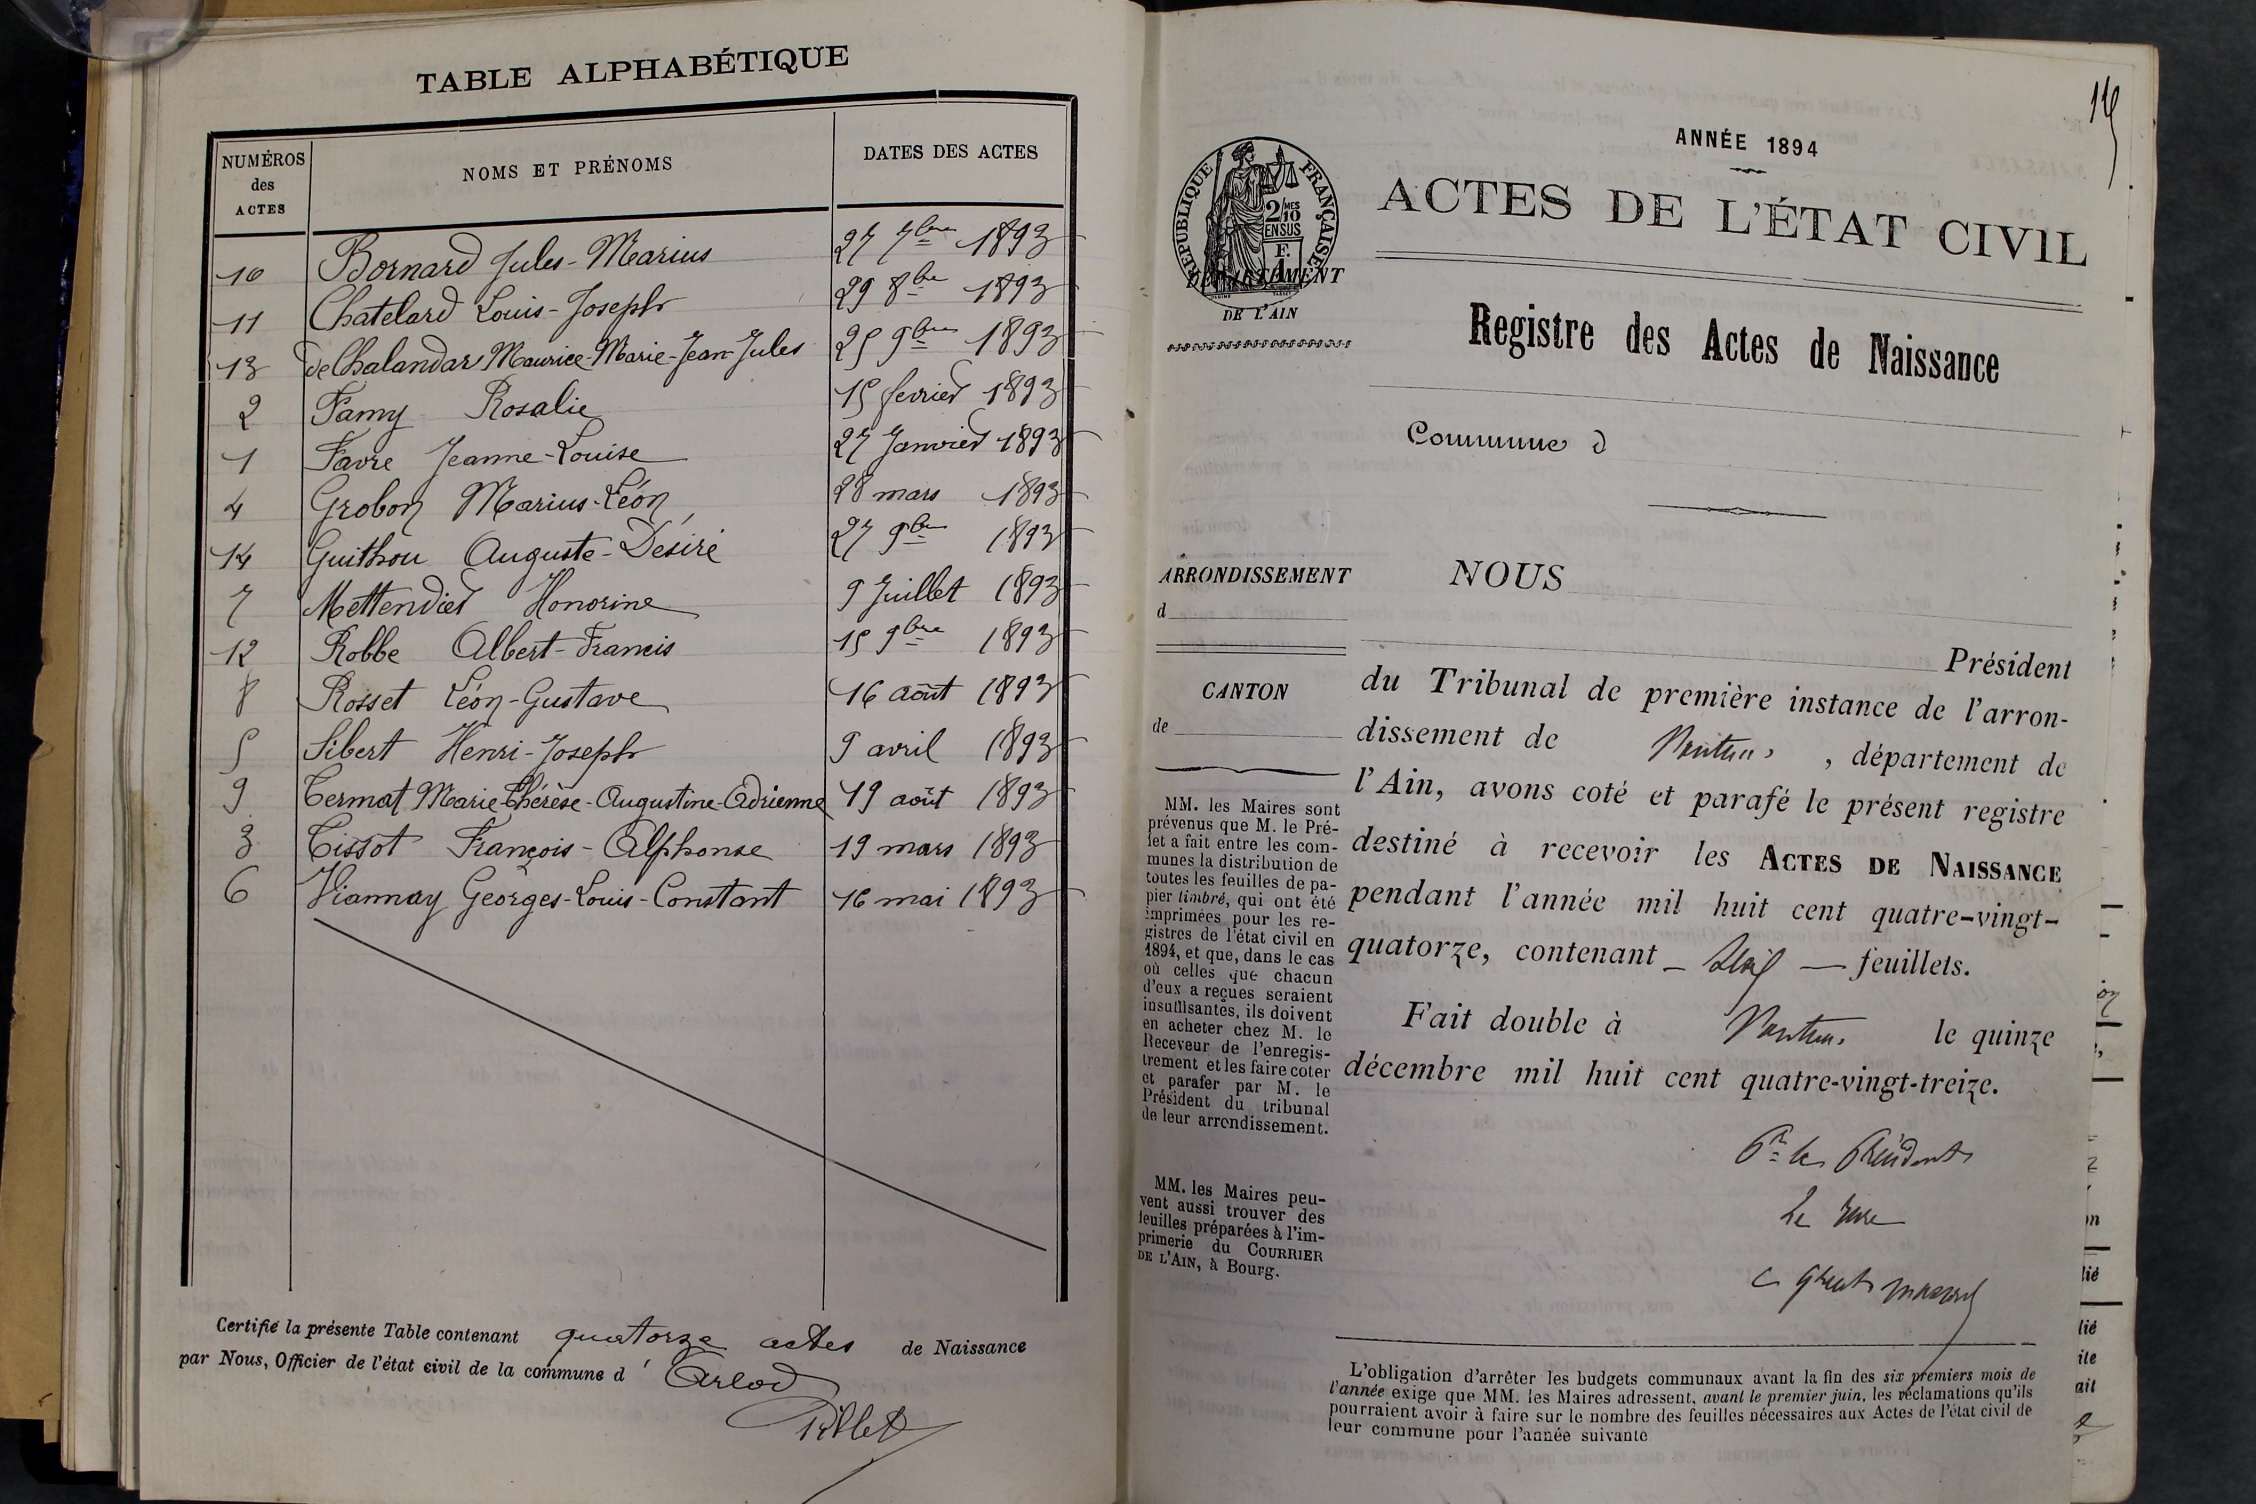 TABLE ALPHABÉTIQUE
NUMÉROS des ACTES NOMS ET PRÉNOMS DATES DES ACTES
10 Bornard Jules-Marius 27 7bre 1893
11 Chatelard Louis-Joseph 29 8bre 1893
13 de Chalandar Maurice-Marie-Jean-Jules 25 9bre 1893
2 Famy Rosalie 15 fevrier 1893
1 Favre Jeanne-Louise 27 Janvier 1893
4 Grobon Marius-Léon 28 mars 1893
14 Guithou Auguste-Désiré 27 9bre 1893
7 Mettendier Honorine 9 Juillet 1893
12 Robbe Albert-Francis 15 9bre 1893
8 Rosset Léon-Gustave 16 août 1893
5 Sibert Henri-Joseph 9 avril 1893
9 Termat Marie-Thérèse-Augustine-Adrienne 19 août 1893
3 Tissot François-Alphonse 19 mars 1893
6 Viannay Georges-Louis-Constant 16 mai 1893
Certifié la présente Table contenant quatorze actes de Naissance
par Nous, Officier de l'état civil de la commune d' Arlod
Pillet
ANNÉE 1894
ACTES DE L'ÉTAT CIVIL
RÉPUBLIQUE FRANÇAISE
2/10 MES
EN SUS
DÉPARTEMENT
DE L'AIN
Registre des Actes de Naissance
Commune d
ARRONDISSEMENT
d
CANTON
de
MM. les Maires sont
prévenus que M. le Pré-
fet a fait entre les com-
munes la distribution de
toutes les feuilles de pa-
pier timbré, qui ont été
imprimées pour les re-
gistres de l'état civil en
1894, et que, dans le cas
où celles que chacun
d'eux a reçues seraient
insuffisantes, ils doivent
en acheter chez M. le
Receveur de l'enregis-
trement et les faire coter
et parafer par M. le
Président du tribunal
de leur arrondissement.
MM. les Maires peu-
vent aussi trouver des
feuilles préparées à l'im-
primerie du COURRIER
DE L'AIN, à Bourg.
NOUS
Président
du Tribunal de première instance de l'arron-
dissement de Nantua, département de
l'Ain, avons coté et parafé le présent registre
destiné à recevoir les ACTES DE NAISSANCE
pendant l'année mil huit cent quatre-vingt-
quatorze, contenant feuillets.
Fait double à Nantua le quinze
décembre mil huit cent quatre-vingt-treize.
Pr le Président
Le Juge
L'obligation d'arrêter les budgets communaux avant la fin des six premiers mois de
l'année exige que MM. les Maires adressent, avant le premier juin, les réclamations qu'ils
pourraient avoir à faire sur le nombre des feuilles nécessaires aux Actes de l'état civil de
leur commune pour l'année suivante